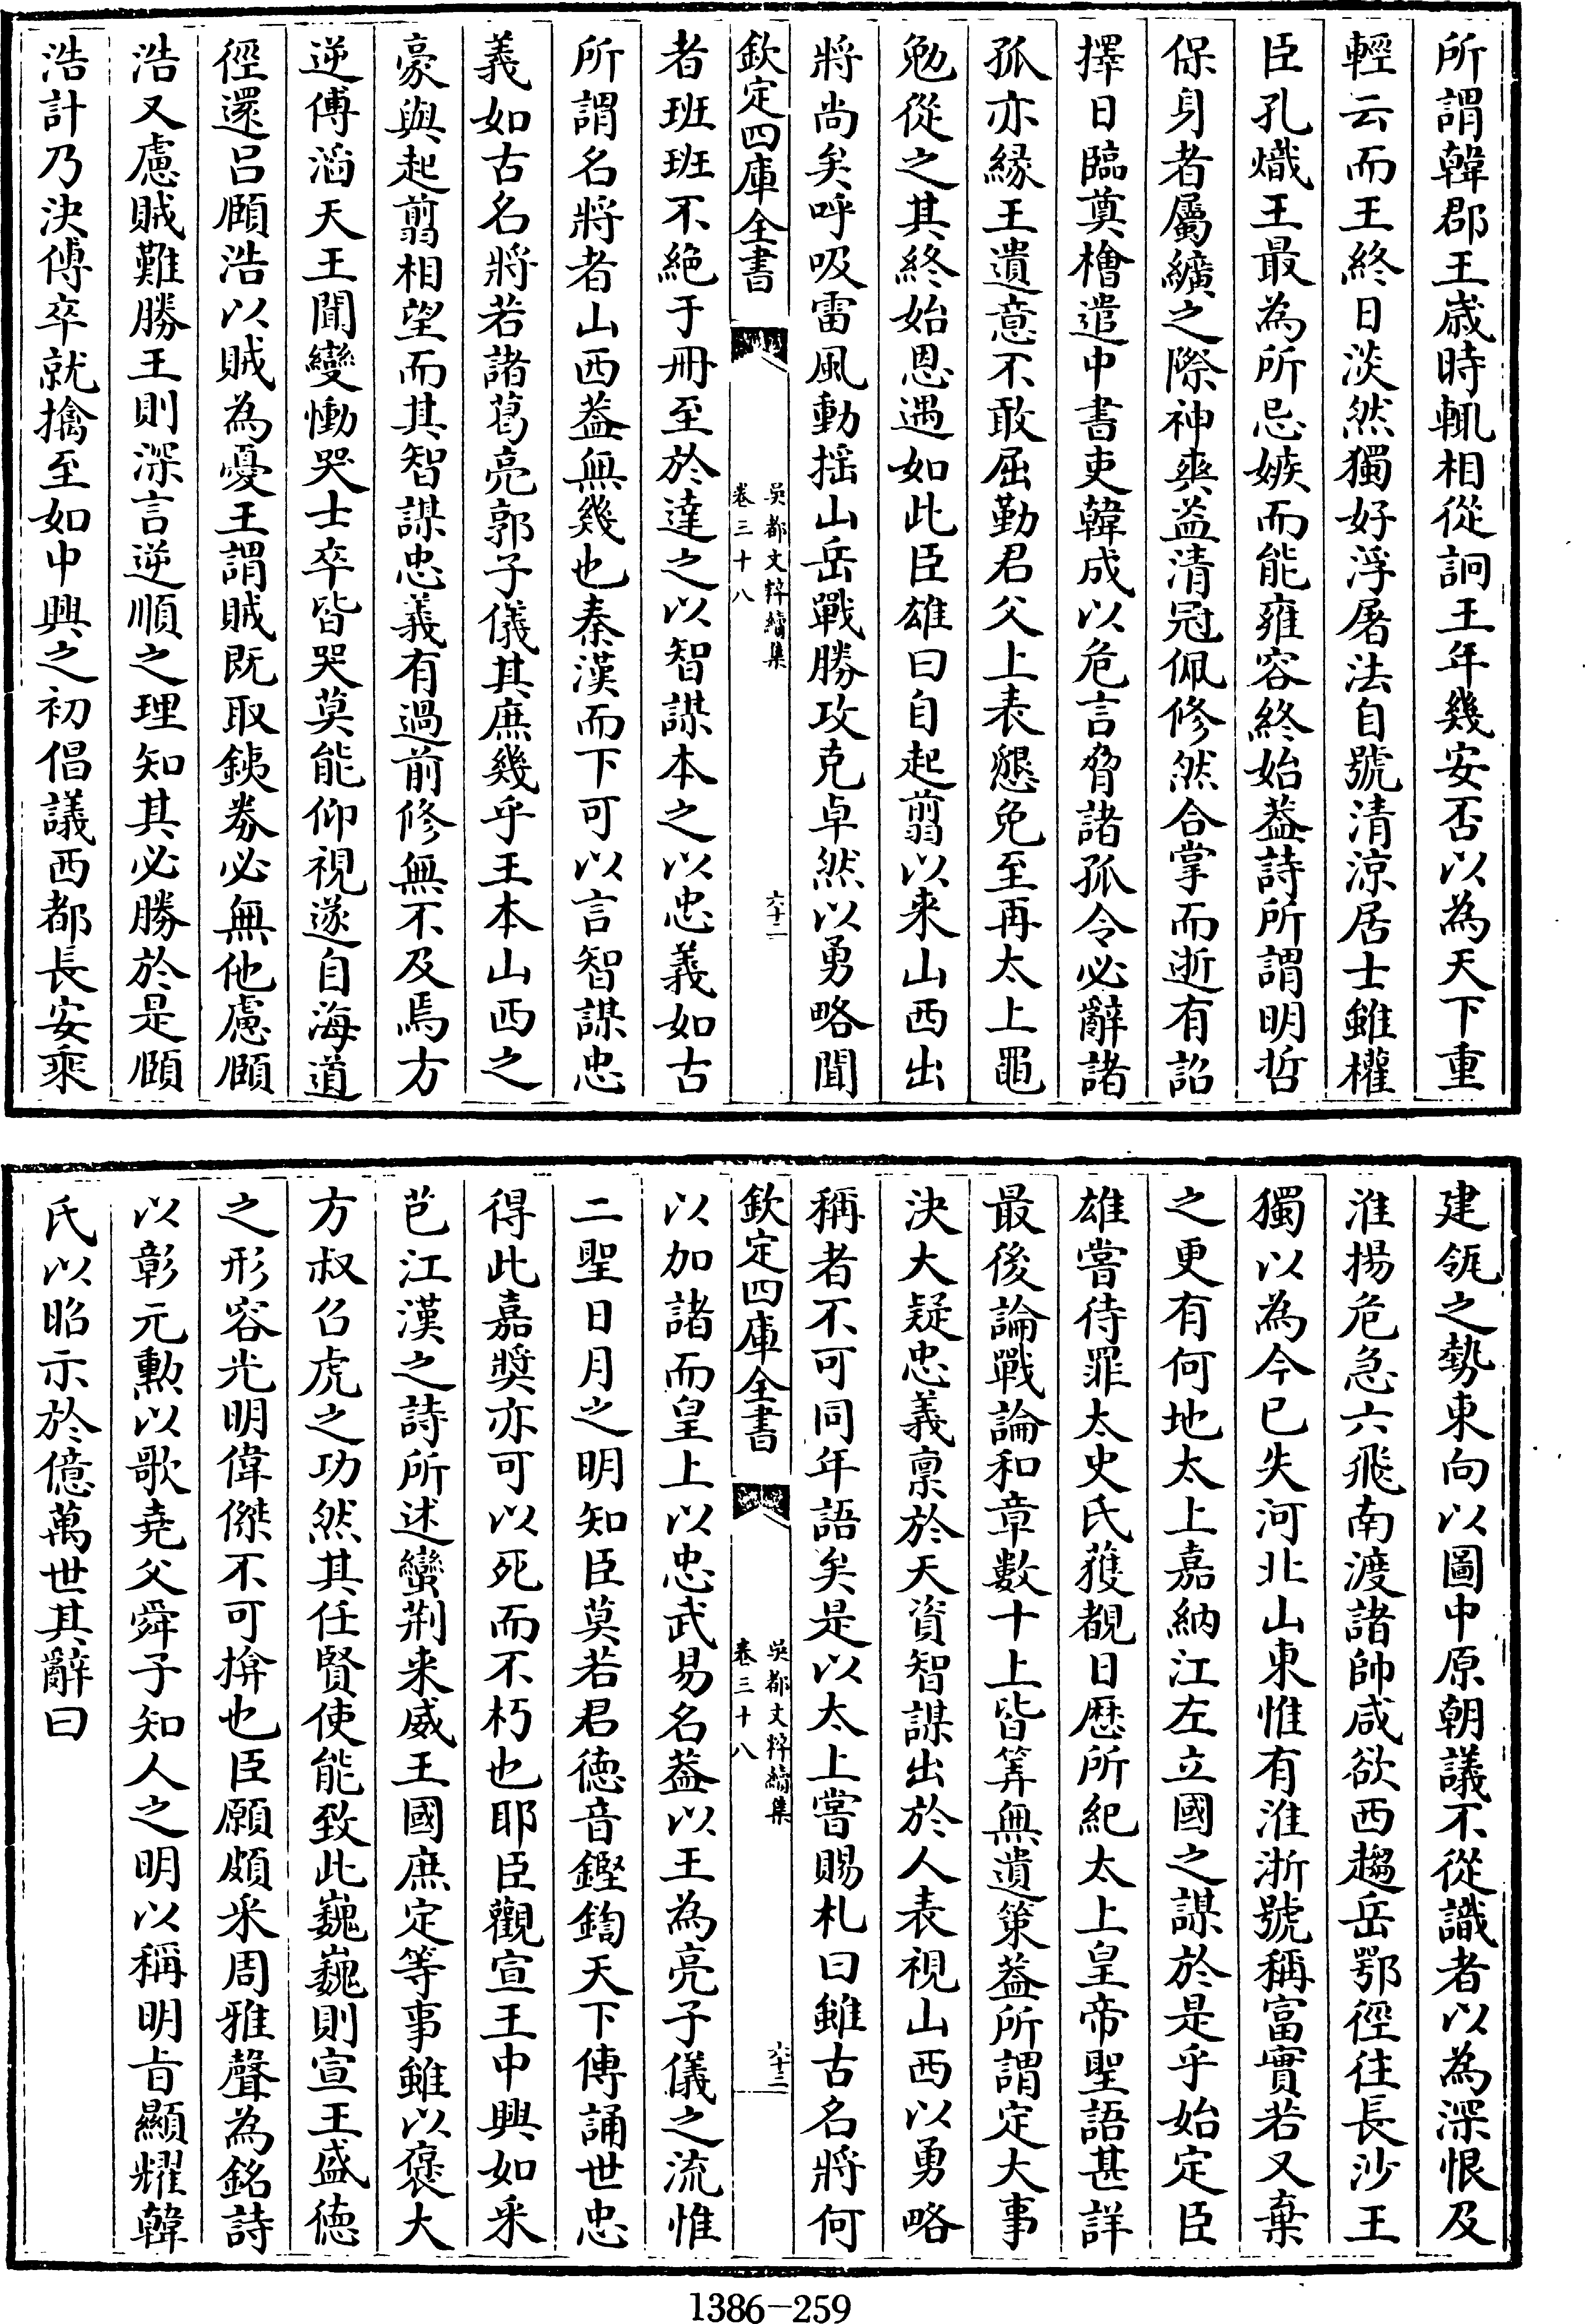 所謂韓郡王歲時輒相從詗王年幾安否以為天下重
輕云而王終日淡然獨好浮屠法自號清涼居士雖權
臣孔熾王最為所忌嫉而能雍容終始葢詩所謂明哲
保身者屬纊之際神爽益清冠佩修然合掌而逝有詔
擇日臨奠檜遣中書吏韓成以危言脅諸孤令必辭諸
孤亦緣王遺意不敢屈勤君父上表懇免至再太上黽
勉從之其終始恩遇如此臣雄曰自起翦以來山西出
將尚矣呼吸雷風動揺山岳戰勝攻克卓然以勇略聞
欽定四庫全書
吳都文粹續集
卷三十八
六十二
者班班不絶于冊至於達之以智謀本之以忠義如古
所謂名將者山西葢無幾也秦漢而下可以言智謀忠
義如古名將若諸葛亮郭子儀其庶幾乎王本山西之
豪與起翦相望而其智謀忠義有過前修無不及焉方
逆傅滔天王聞變慟哭士卒皆哭莫能仰視遂自海道
徑還呂頤浩以賊為憂王謂賊既取鐵劵必無他慮頤
浩又慮賊難勝王則深言逆順之理知其必勝於是頤
浩計乃決傅卒就擒至如中興之初倡議西都長安乘
建瓴之勢東向以圖中原朝議不從識者以為深恨及
淮揚危急六飛南渡諸帥咸欲西趨岳鄂徑往長沙王
獨以為今已失河北山東惟有淮浙號稱富實若又棄
之更有何地太上嘉納江左立國之謀於是乎始定臣
雄嘗待罪太史氏獲覩日歴所紀太上皇帝聖語甚詳
最後論戰論和章數十上皆筭無遺策葢所謂定大事
決大疑忠義稟於天資智謀出於人表視山西以勇略
稱者不可同年語矣是以太上嘗賜札曰雖古名將何
欽定四庫全書
吳都文粹續集
卷三十八
六十二
以加諸而皇上以忠武易名葢以王為亮子儀之流惟
二聖日月之明知臣莫若君徳音鏗鍧天下傳誦世忠
得此嘉奬亦可以死而不朽也耶臣觀宣王中興如采
芑江漢之詩所述蠻荆来威王國庶定等事雖以褒大
方叔召虎之功然其任賢使能致此巍巍則宣王盛徳
之形容光明偉傑不可揜也臣願頗采周雅聲為銘詩
以彰元勲以歌堯父舜子知人之明以稱明㫖顯耀韓
氏以昭示於億萬世其辭曰
1386-259